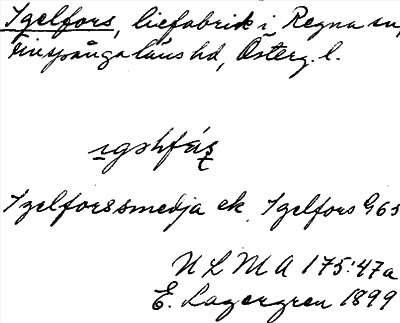 Igelfors, liefabrik i Regna sn,
Finspånga läns hd, Österg. l.
Igelforssmedja ek. Igelfors G63
ULMA 175:47a
E. Lagergren 1899